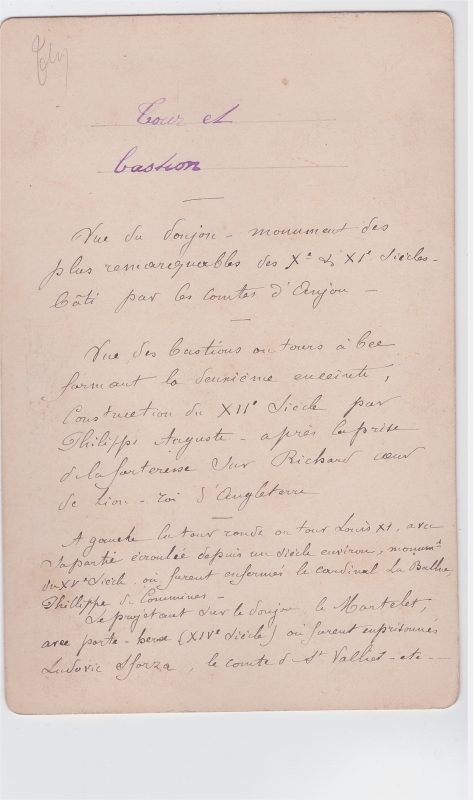 Tour et
bastion
Vue du donjon - monument des
plus remarquables des Xe & XIe Siècles -
bâti par les comtes d'Anjou -
Vue des bastions ou tours à bec
formant la deuxième enceinte,
Construction du XIIe Siècle par
Philippe Auguste - après la prise
de la forteresse sur Richard cœur
de Lion - roi d'Angleterre
A gauche la tour ronde ou tour Louis XI, avec
sa partie écroulée depuis un siècle environ, monumt
du XVe Siècle, où furent enfermés le cardinal La Ballue,
Phillippe de Commines -
Se projetant sur le donjon, le Martelet,
avec porte - (XIVe Siècle) où furent emprisonnés
Ludovic Sforza, le comte de St Vallier - etc -